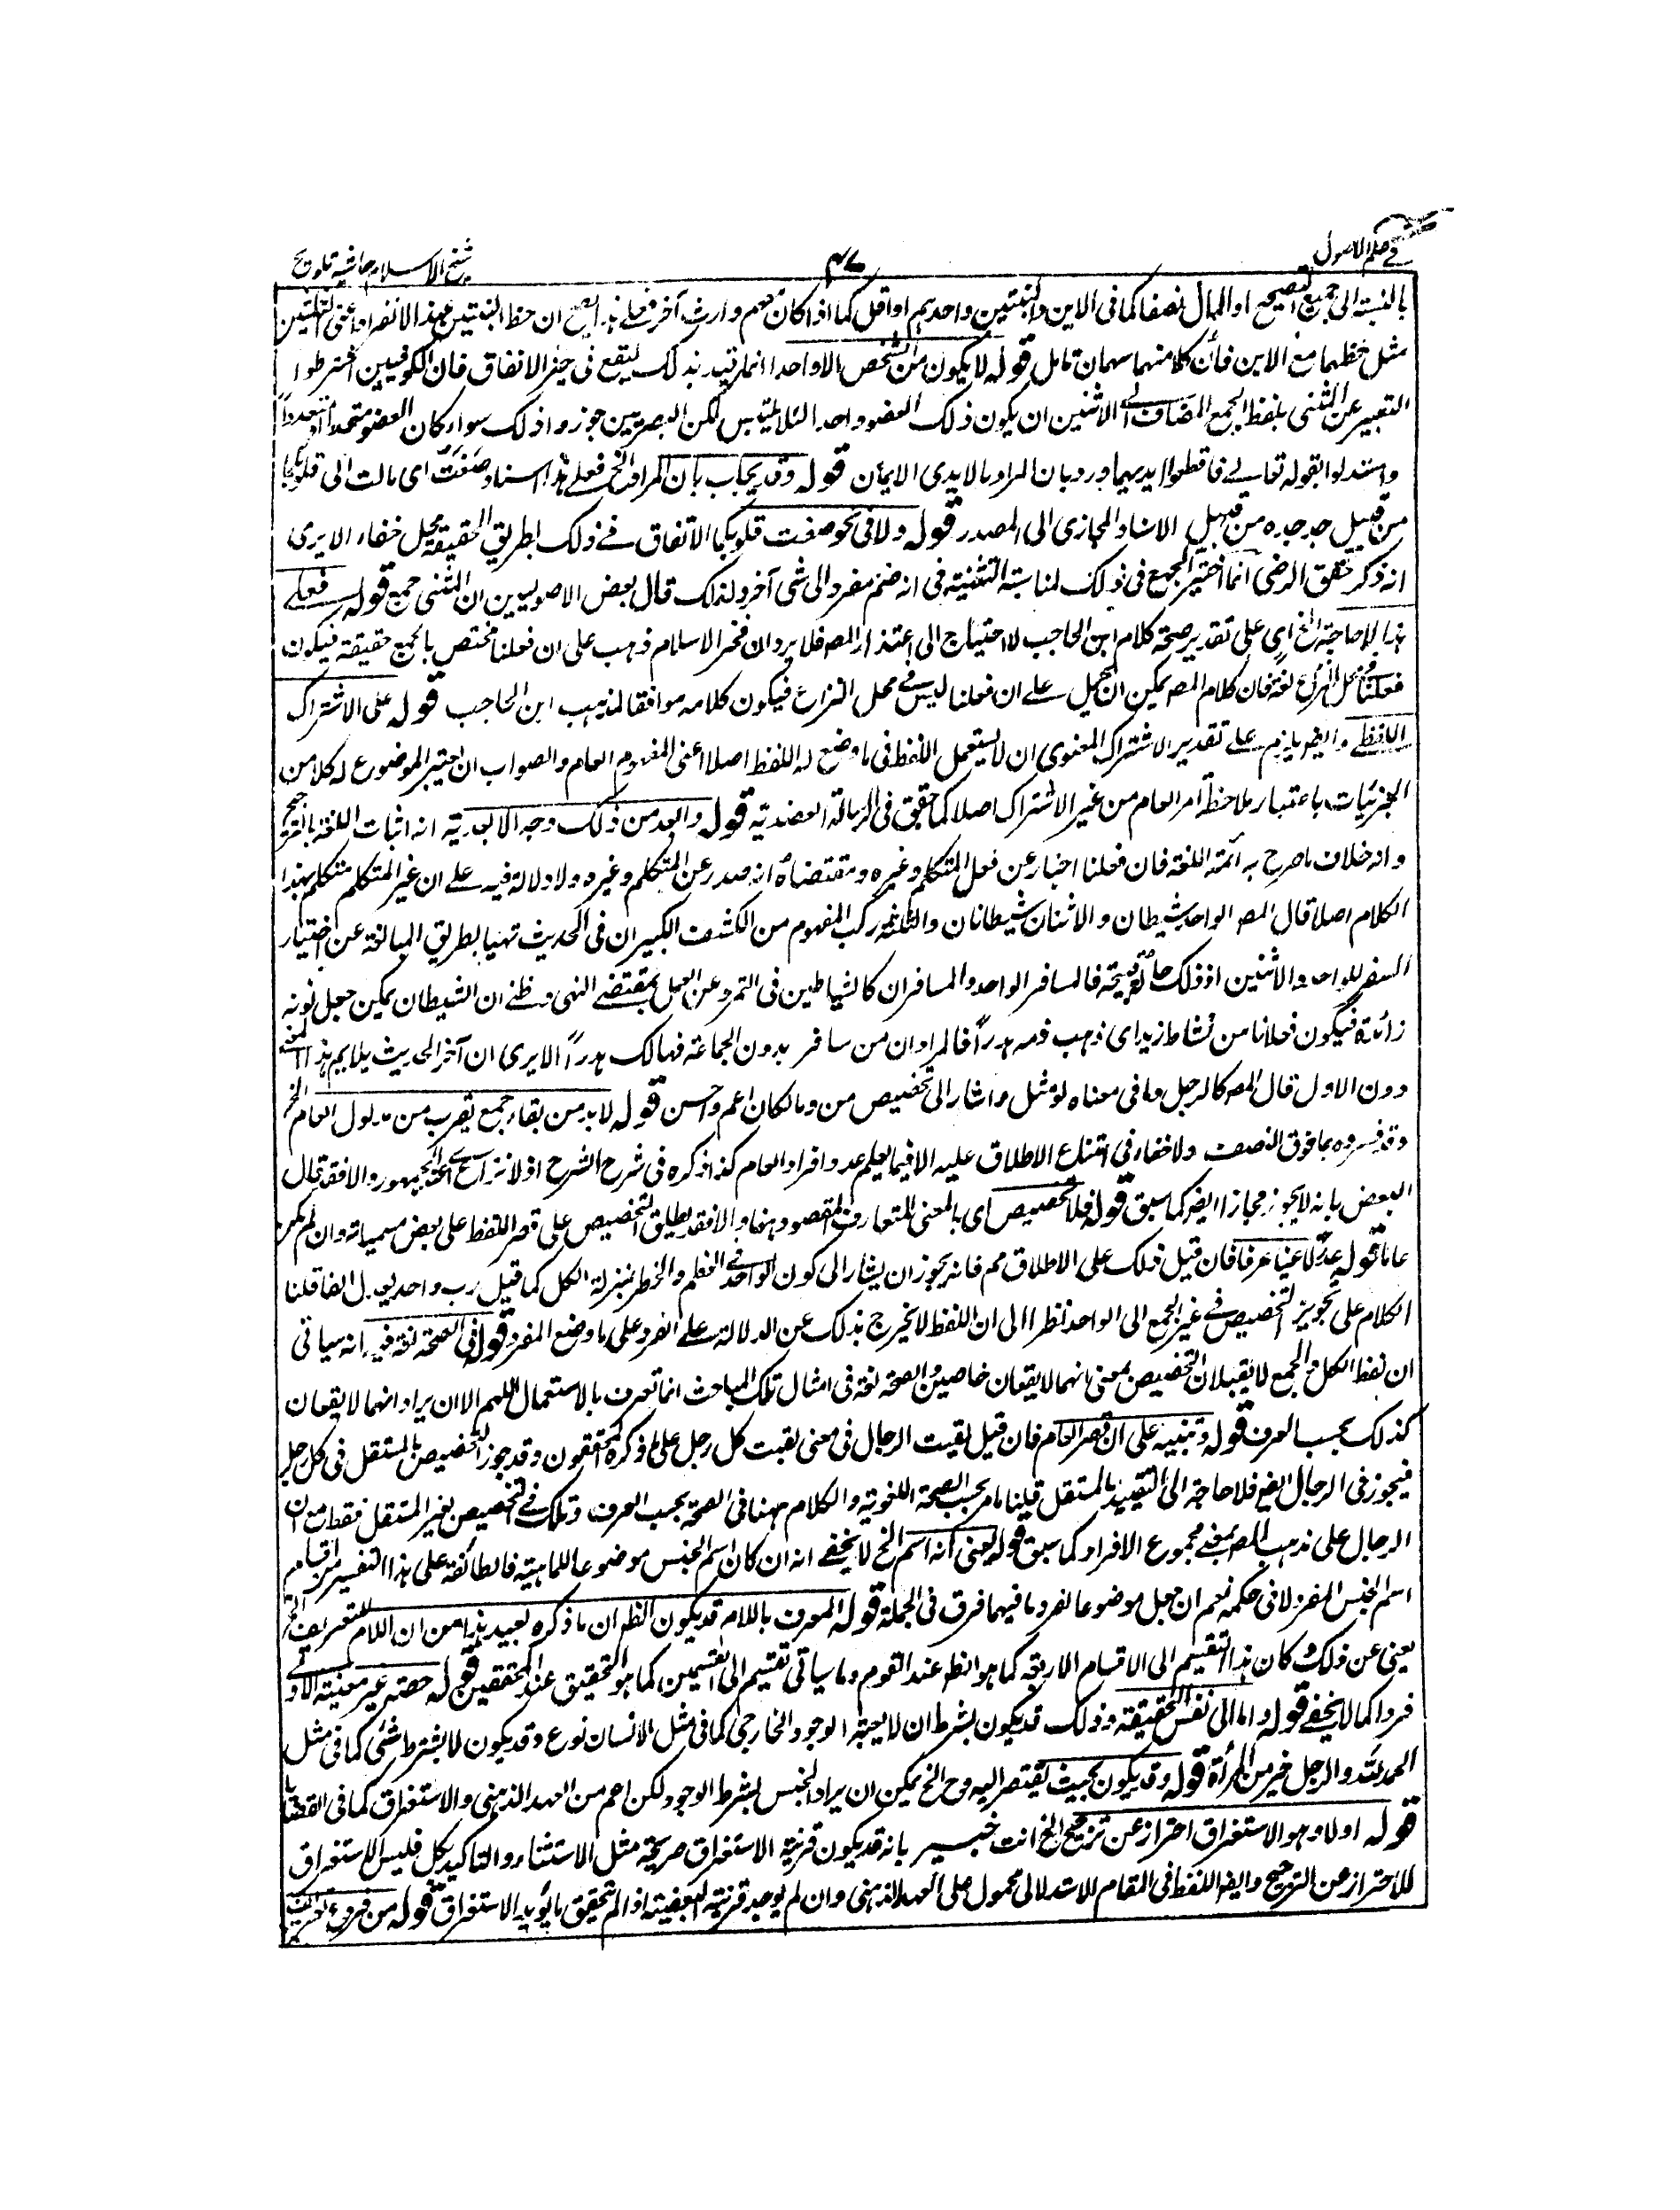 في علم الاصول
٤٧
شيخ الاسلام حاشية تلويح
بالنسبة الى جميع التصحيح او المال نصفا كما فى الابن والبنتين واحد بهم او اقل كما اذا كان معهم وارث آخر فعلى هذا يصح ان حظ البنتين عند الانفراد اعنى الثلثين
مثل حظهما مع الابن فان كلا منهما سهمان تامل قوله لا يكون من الشخص الا واحدا انما قيد بذلك ليقع فى حيز الاتفاق فان الكوفيين اشترطوا
التعبير عن المثنى بلفظ الجمع المضاف الى الاثنين ان يكون ذلك العضو واحدا لئلا يلتبس لكن البصريين جوزوا ذلك سواء كان العضو متحدا او متعددا
واستدلوا بقوله تعالى فاقطعوا ايديهما ورد بان المراد بالايدى الايمان قوله وقد يجاب بان المراد الخ فعلى هذا اسناد صغت اى مالت الى قلوبكما
من قبيل جد جده من قبيل الاسناد المجازى الى المصدر قوله ولا فى نحو صغت قلوبكما الاتفاق فى ذلك بطريق الحقيقة محل خفاء الا يرى
انه ذكر محقق الرضى انما اختير الجمع فى ذلك لمناسبة التثنية فى انه ضم مفرد الى شى آخر ولذلك قال بعض الاصوليين ان المثنى جمع قوله فعلى
هذا لا حاجة الخ اى على تقدير صحة كلام ابن الحاجب لا احتياج الى اعتذار المص فلا يرد ان فخر الاسلام ذهب على ان فعلنا مختص بالجمع حقيقة فيكون
فعلنا محل النزاع لغة فان كلام المص يمكن ان يحمل على ان فعلنا ليس فى محل النزاع فيكون كلامه موافقا لمذهب ابن الحاجب قوله على الاشتراك
اللفظى وايضا يلزم على تقدير الاشتراك المعنوى ان لا يستعمل اللفظ فى ما وضع له اللفظ اصلا اعنى المفهوم العام والصواب ان يعتبر الموضوع له كلا من
الجزئيات باعتبار ملاحظة امر العام من غير الاشتراك اصلا كما حقق فى الرسالة العضدية قوله وابعد من ذلك وجه الابعدية انه اثبات اللغة بالترجيح
وانه خلاف ما صرح به ائمة اللغة فان فعلنا اخبار عن فعل المتكلم وغيره ومقتضاه انه صدر عن المتكلم وغيره ولا دلالة فيه على ان غير المتكلم متكلم بهذا
الكلام اصلا قال المص الواحد شيطان والاثنان شيطانان والثلثة ركب المفهوم من الكشف الكبير ان فى الحديث نهيا بطريق المبالغة عن اختيار
السفر للواحد والاثنين اذ ذلك حالة قبيحة فالمسافر الواحد والمسافران كالشياطين فى التمرد عن العمل بمقتضى النهى وظنى ان الشيطان يمكن جعل نونه
زائدة فيكون فعلانا من شاط زيد اى ذهب دمه هدرا فالمراد ان من سافر بدون الجماعة فهالك هدرا الا يرى ان آخر الحديث يلايم هذا المعنى
دون الاول قال المص كالرجل وما فى معناه لو مثل واشار الى تخصيص من وما لكان اعم واحسن قوله لا بد من بقاء جمع يقرب من مدلول العام الخ
وقد فسروه بما فوق النصف ولا خفاء فى امتناع الاطلاق عليه الا فيما يعلم عدد افراد العام كذا ذكره فى شرح الشرح اذ لا نزاع عند الجمهور والا فقد قال
البعض بانه لا يجوز مجازا ايضا كما سبق قوله فلا تخصيص اى بالمعنى المتعارف المقصود هنا والا فقد يطلق التخصيص على قصر اللفظ على بعض مسمياته وان لم يكن
عاما قوله عد لاغيا عرفا فان قيل ذلك على الاطلاق مم فانه يجوز ان يشار الى كون الواحد فى العظم والخطر بمنزلة الكل كما قيل رب واحد يعدل الفا قلنا
الكلام على تجويز التخصيص فى غير الجمع الى الواحد نظرا الى ان اللفظ لا يخرج بذلك عن الدلالة على الفرد على ما وضع المفرد قوله فى الصحة لغة فيه انه سياتى
ان لفظ الكل والجمع لا يقبلان التخصيص بمعنى انهما لا يقعان خاصين والصحة لغة فى امثال تلك المباحث انما تعرف بالاستعمال اللهم الا ان يراد انهما لا يقعان
كذلك بحسب العرف قوله وتنبيه على ان قصر العام فان قيل لقيت الرجال فى معنى لقيت كل رجل على ما ذكره المحققون وقد جوز التخصيص بالمستقل فى كل رجل
فيجوز فى الرجال ايضا فلا حاجة الى التقييد بالمستقل قلنا ما مر بحسب الصحة اللغوية والكلام ههنا فى الصحة بحسب العرف وتلك فى التخصيص بغير المستقل فقط مع ان
الرجال على مذهب المص بمعنى مجموع الافراد كما سبق قوله يعنى انه اسم الخ لا يخفى انه ان كان اسم الجنس موضوعا للماهية فالطائفة على هذا التفسير من اقسام
اسم الجنس المفرد لا فى حكمه نعم ان جعل موضوعا لفرد ما فيهما فرق فى الجملة قوله المعرف باللام قد يكون الظ ان ما ذكره بعيد هذا من ان اللام للتعريف الخ
يعنى عن ذلك وكان هذا التقسيم الى الاقسام الاربعة كما هو الظ عند القوم وما سياتى تقسيم الى القسمين كما هو التحقيق عند المحققين قوله حصة غير معينة الاولى
فردا كما لا يخفى قوله واما الى نفس الحقيقة وذلك قد يكون بشرط ان لا يعتبر الوجود الخارجى كما فى مثل الانسان نوع وقد يكون لا بشرط شئ كما فى مثل
الحمد لله والرجل خير من المرأة قوله وقد يكون بحيث يفتقر اليه وح الخ يمكن ان يراد الجنس بشرط الوجود لكن اعم من العهد الذهنى والاستغراق كما فى القضايا
قوله اولا وهو الاستغراق احتراز عن ترجيح الخ انت خبير بانه قد يكون قرينة الاستغراق صريحة مثل الاستثناء والتاكيد بكل فليس الاستغراق
للاحتراز عن الترجيح وايضا اللفظ فى المقام الاستدلالى محمول على العهد الذهنى وان لم يوجد قرينة البعضية اذ لم يتحقق ما يؤيد الاستغراق قوله من فروع